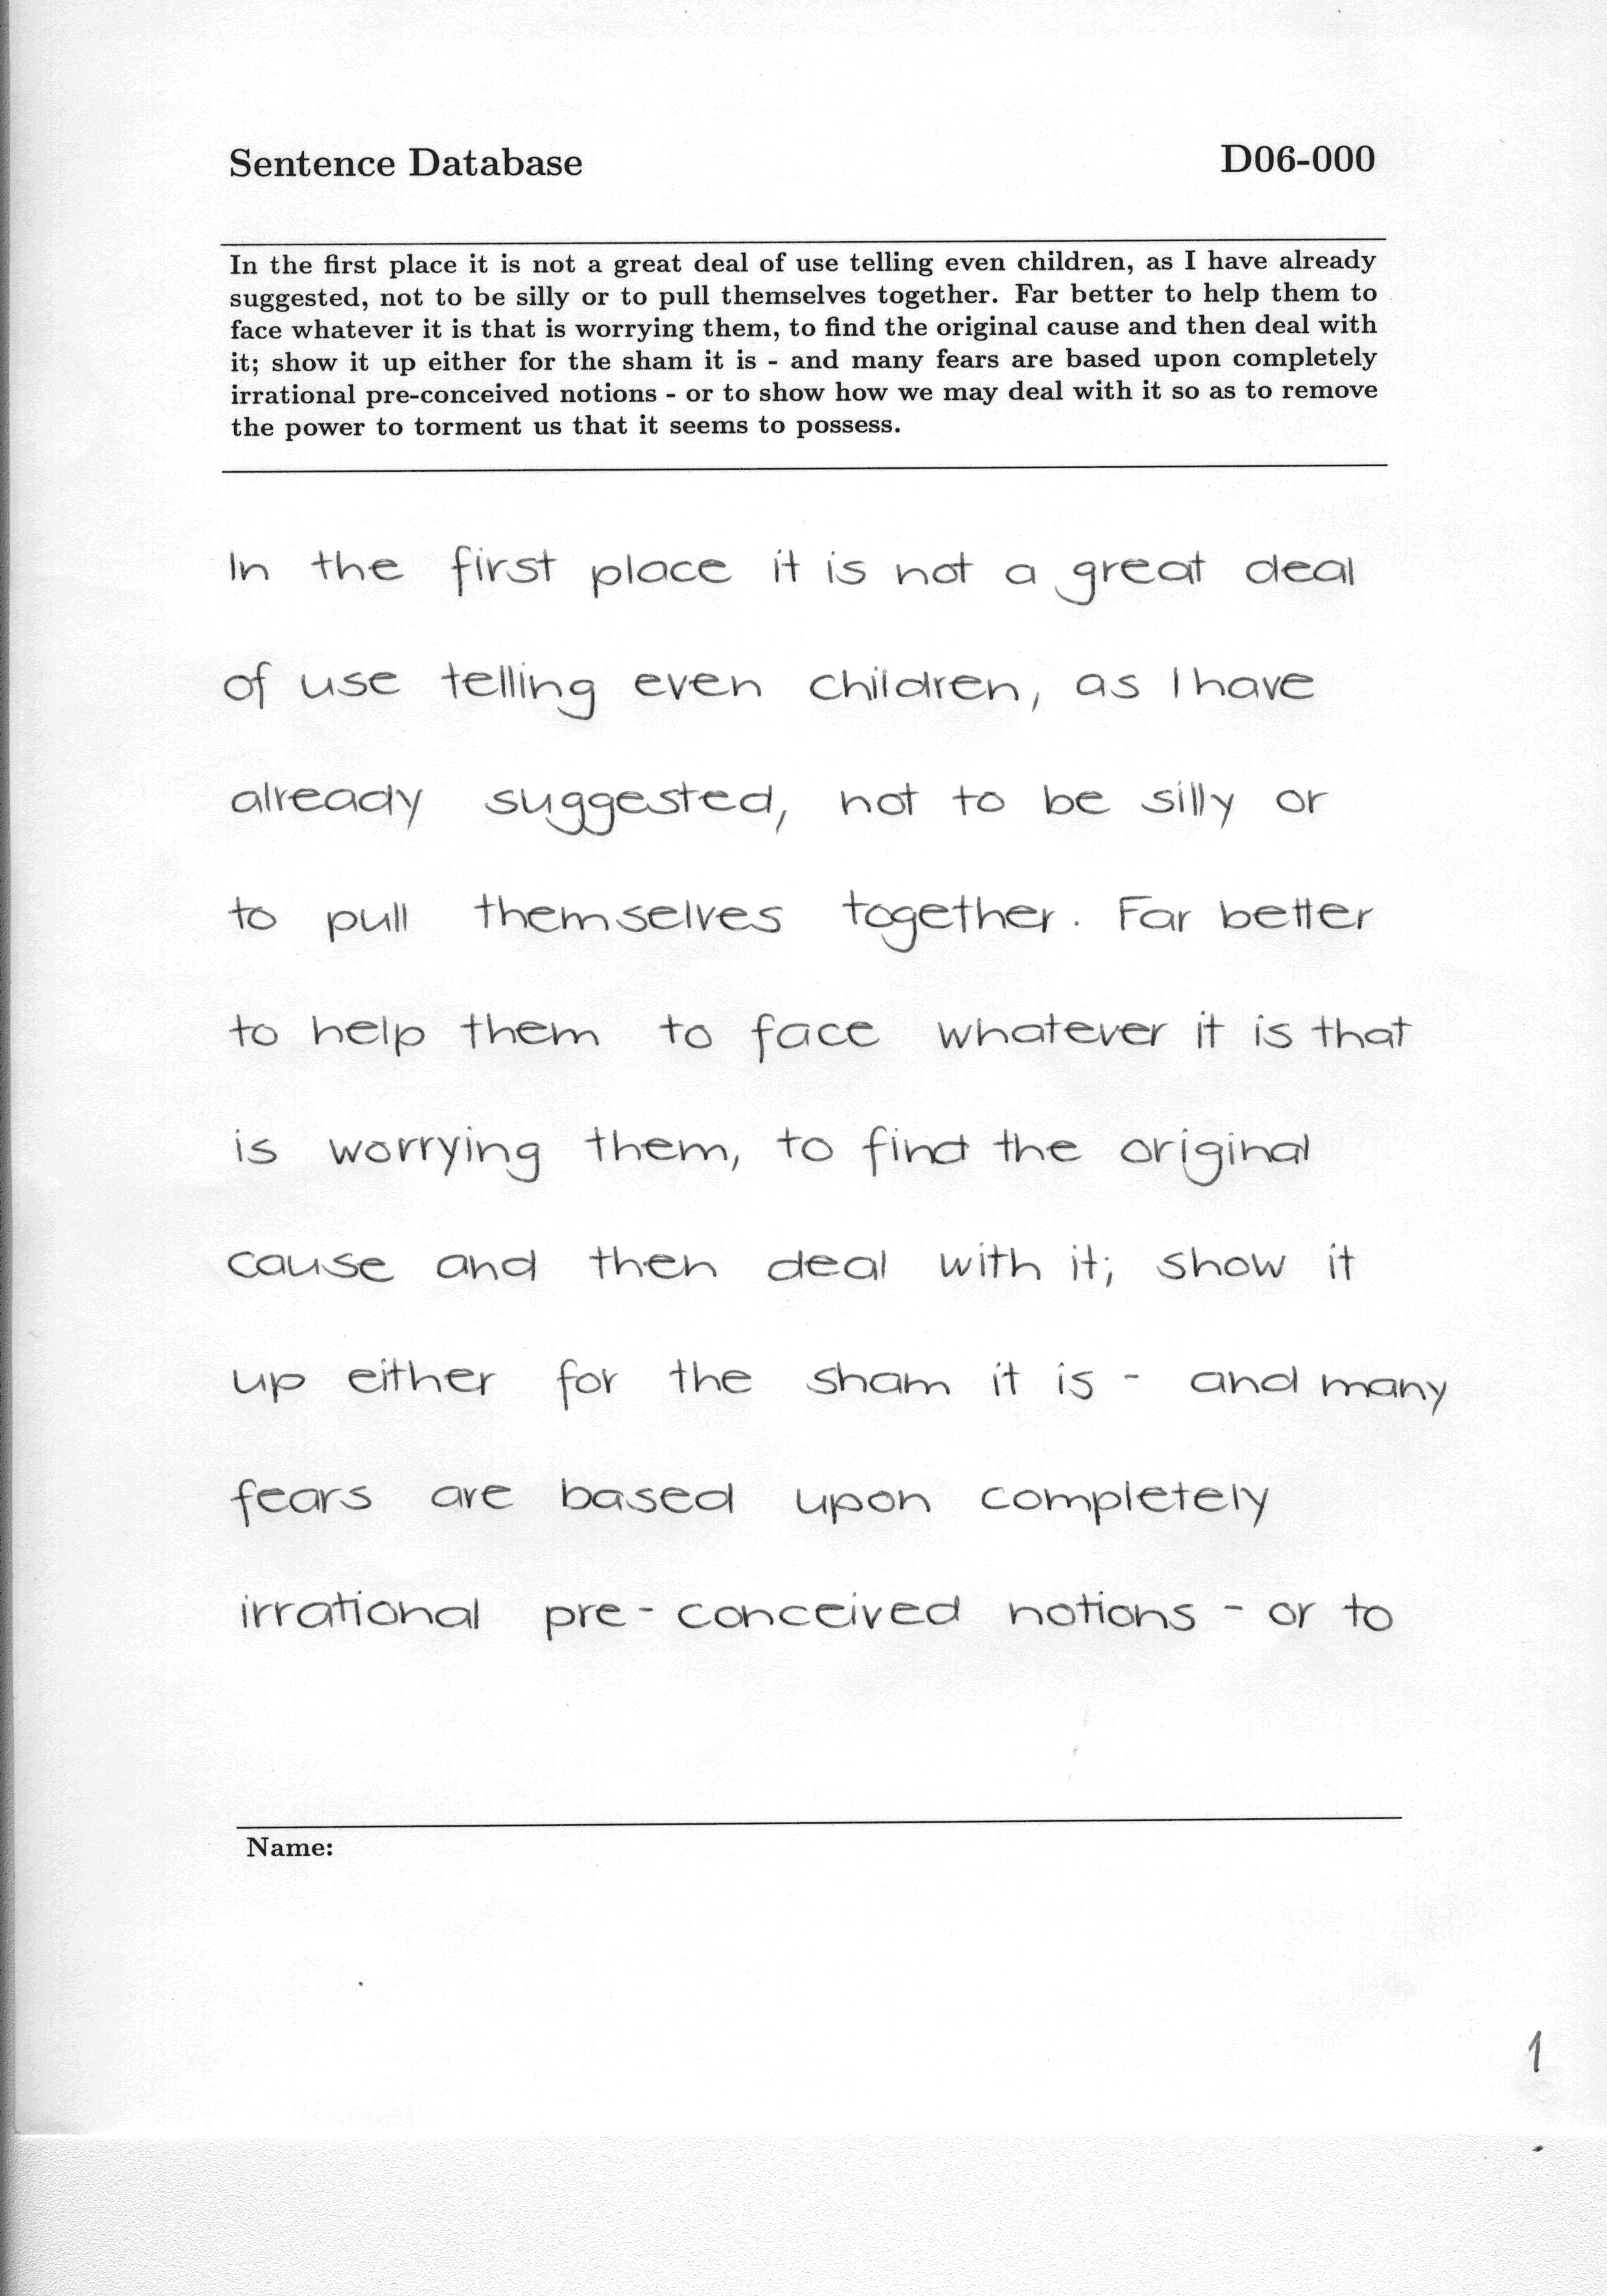 Sentence Database D06-000
In the first place it is not a great deal of use telling even children, as I have already
suggested, not to be silly or to pull themselves together. Far better to help them to
face whatever it is that is worrying them, to find the original cause and then deal with
it; show it up either for the sham it is - and many fears are based upon completely
irrational pre-conceived notions - or to show how we may deal with it so as to remove
the power to torment us that it seems to possess.
In the first place it is not a great deal
of use telling even children, as I have
already suggested, not to be silly or
to pull themselves together. Far better
to help them to face whatever it is that
is worrying them, to find the original
cause and then deal with it; show it
up either for the sham it is - and many
fears are based upon completely
irrational pre-conceived notions - or to
Name:
1